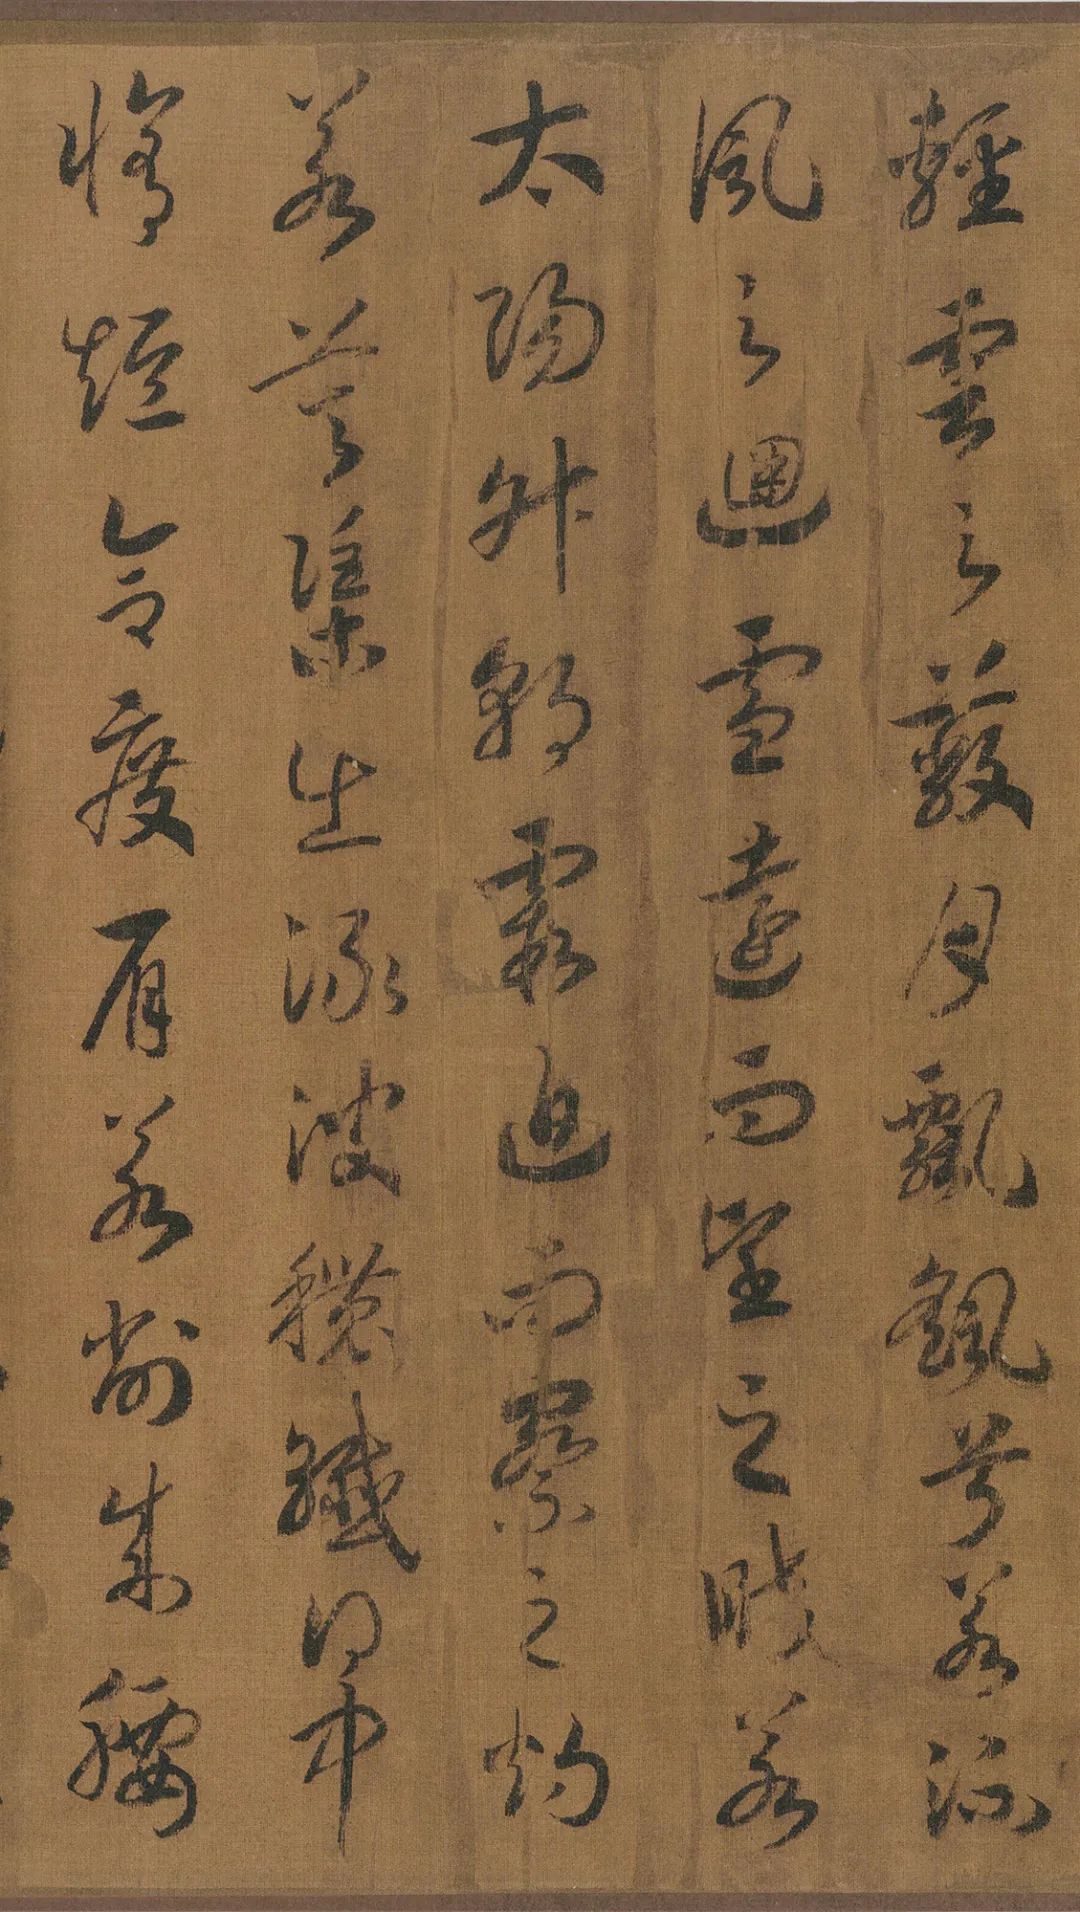 輕雲之蔽月飄飖兮若流
風之迴雪遠而望之晈若
太陽升朝霞迫而察之灼
若芙渠生淥波穠纖得中
脩短合度肩若削成腰